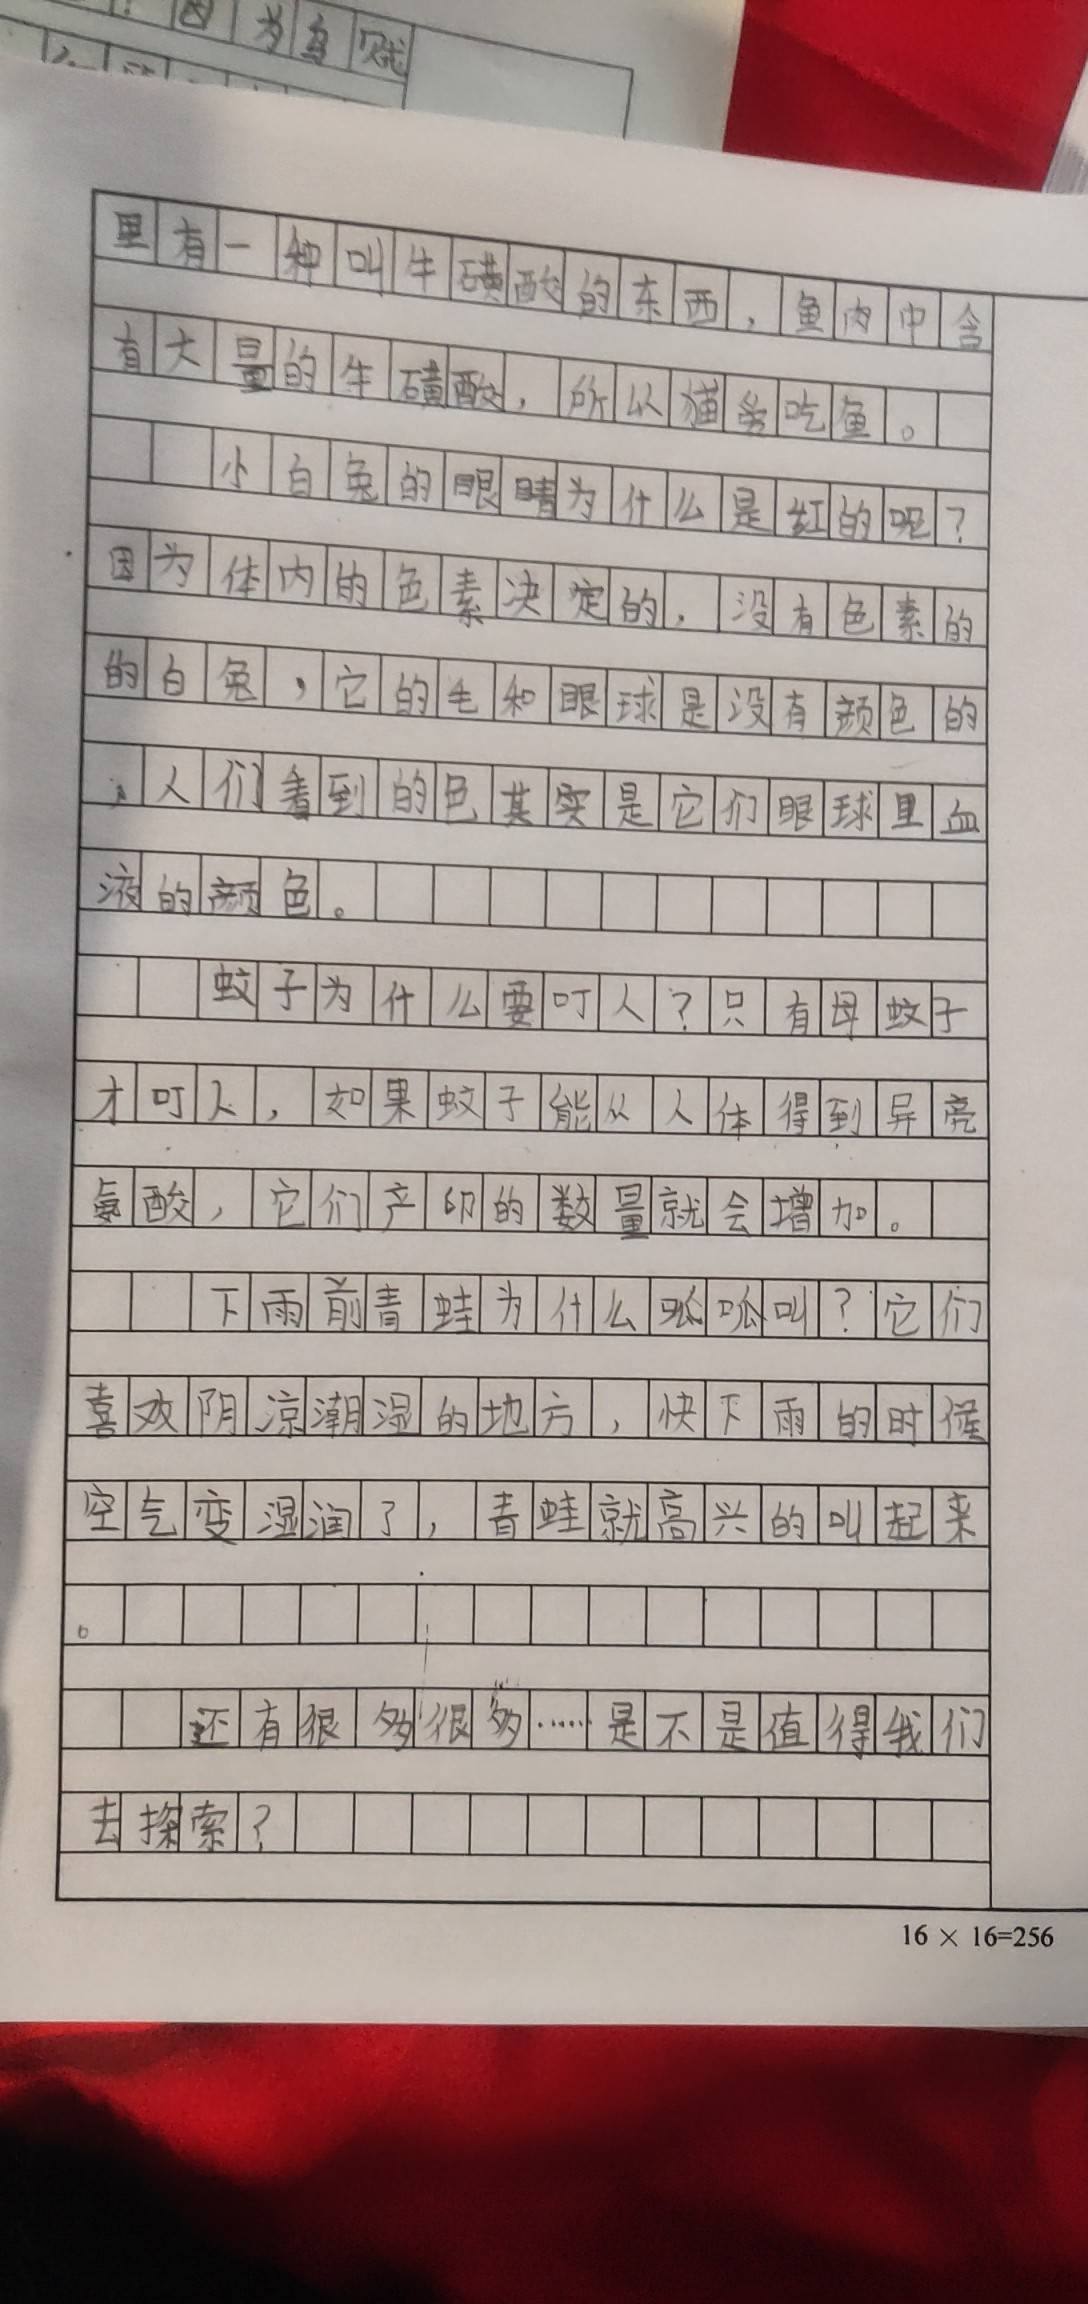 因为乌贼
里有一种叫牛磺酸的东西，鱼肉中含
有大量的牛磺酸，所以猫爱吃鱼。
小白兔的眼睛为什么是红的呢？
因为体内的色素决定的，没有色素的
的白兔，它的毛和眼球是没有颜色的
，人们看到的色其实是它们眼球里血
液的颜色。
蚊子为什么要叮人？只有母蚊子
才叮人，如果蚊子能从人体得到异亮
氨酸，它们产卵的数量就会增加。
下雨前青蛙为什么呱呱叫？它们
喜欢阴凉潮湿的地方，快下雨的时候
空气变湿润了，青蛙就高兴的叫起来
。
还有很多很多……是不是值得我们
去探索？
16 × 16=256